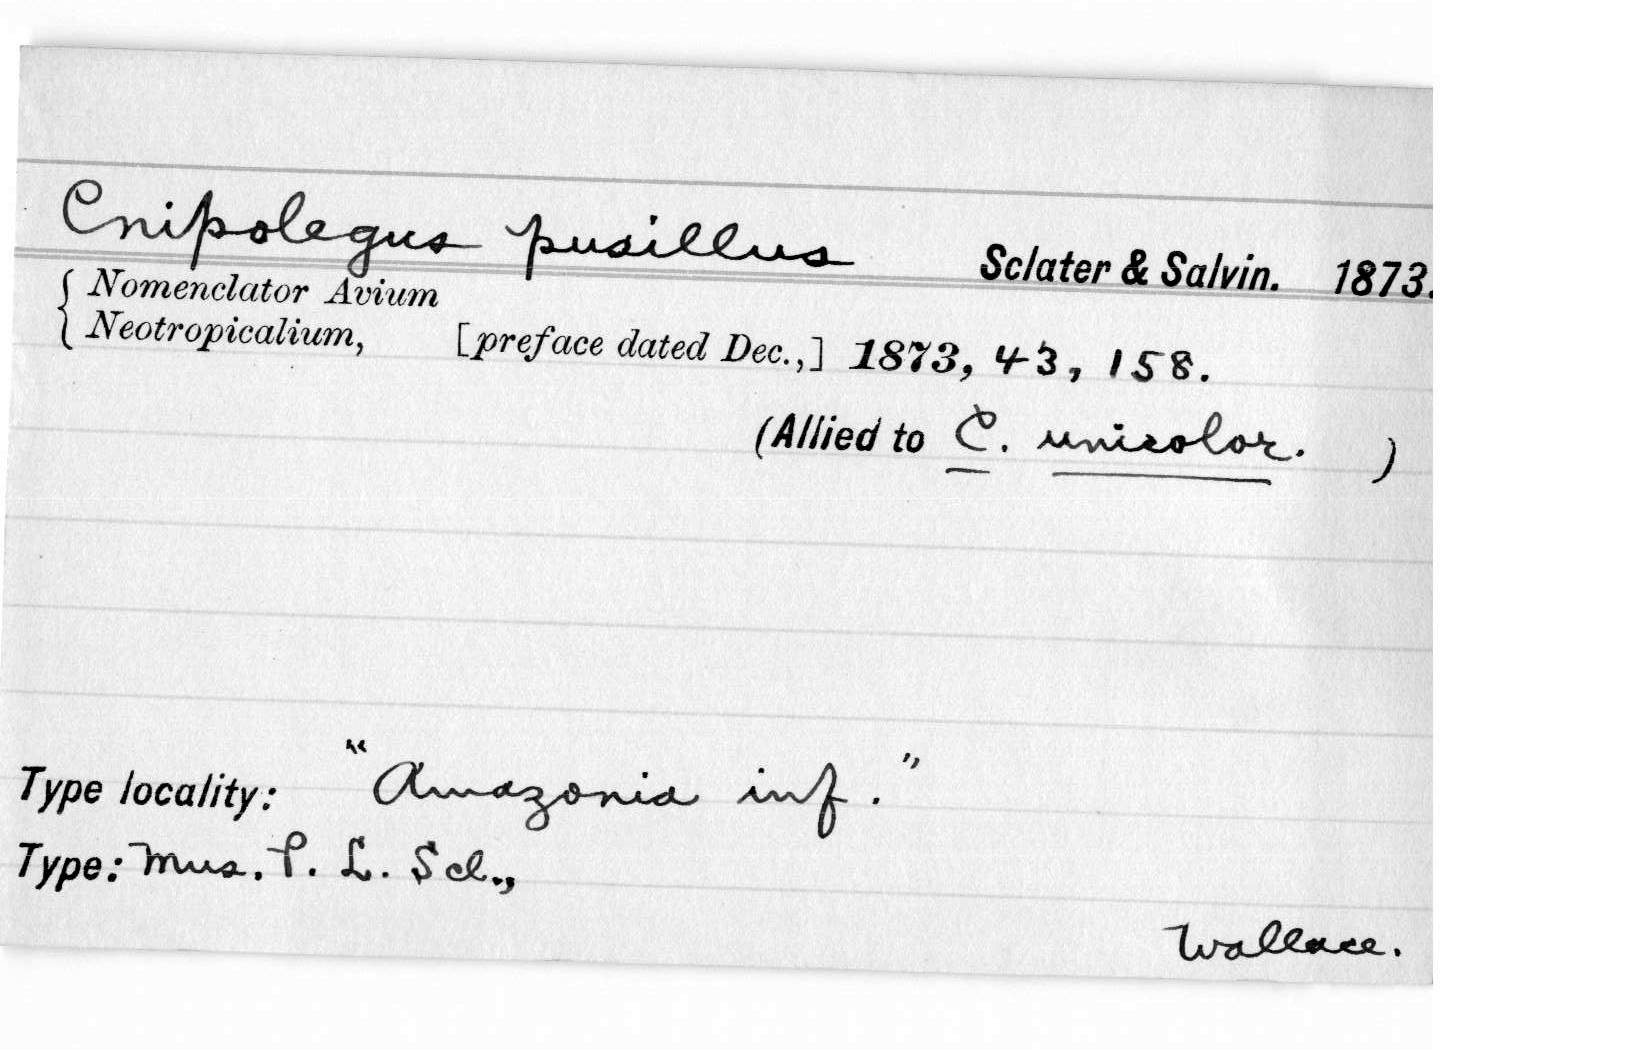 Cnipolegus pusillus Sclater & Salvin. 1873.
{ Nomenclator Avium
Neotropicalium, [preface dated Dec.,] 1873, 43, 158.
(Allied to C. unicolor. )
Type locality: "Amazonia inf."
Type: Mus. P. L. Scl.,
Wallace.